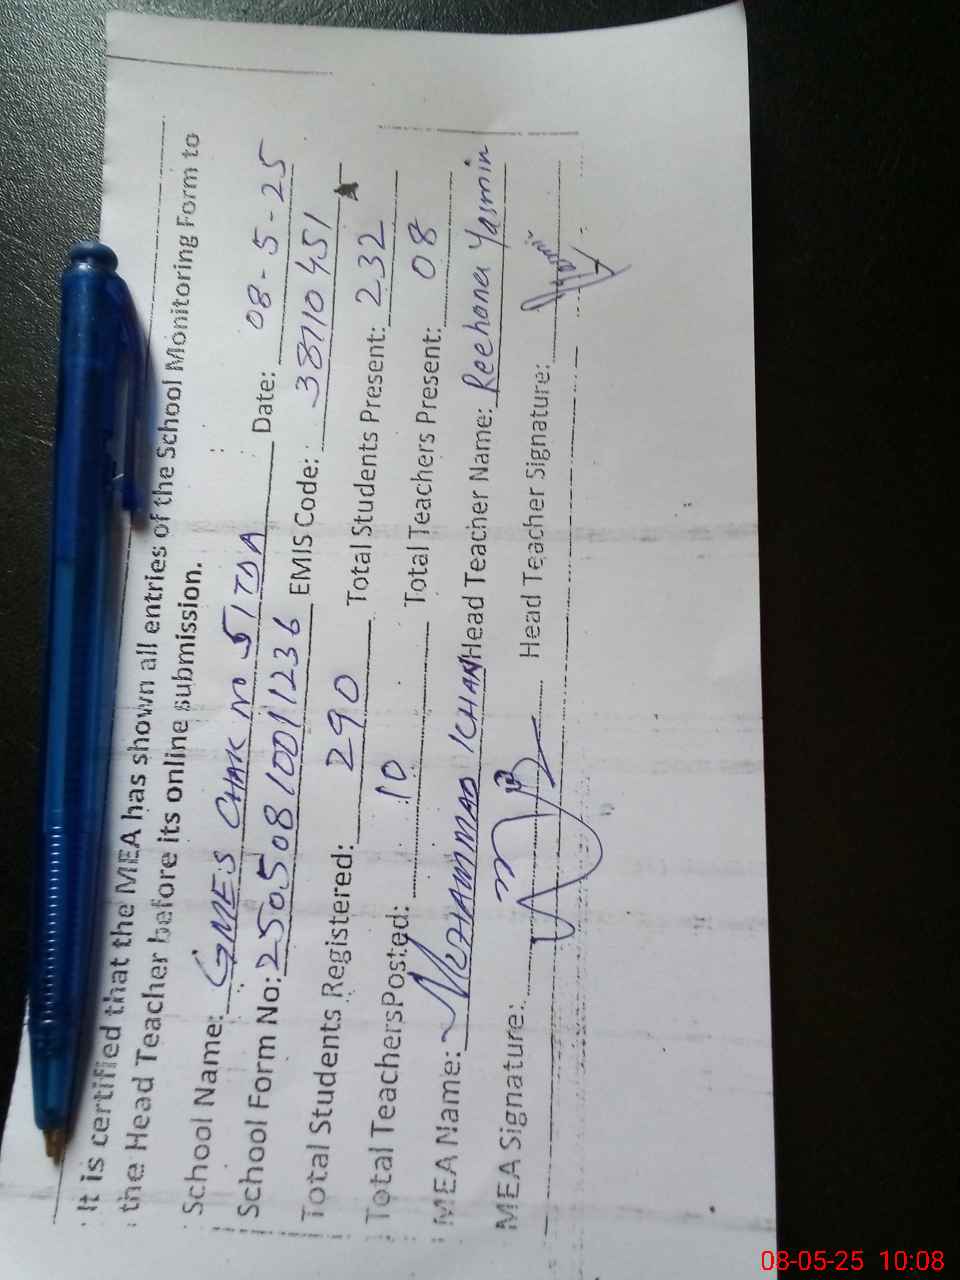 It is certified that the MEA has shown all entries of the School Monitoring Form to
the Head Teacher before its online submission.
School Name: GMES CHAK NO 51TDA Date: 08-5-25
School Form No: 25050810011236 EMIS Code: 38710451
Total Students Registered: 290 Total Students Present: 232
Total TeachersPosted: 10 Total Teachers Present: 08
MEA Name: MUHAMMAD KHAN Head Teacher Name: Reehana Yasmin
MEA Signature: Head Teacher Signature:
08-05-25 10:08